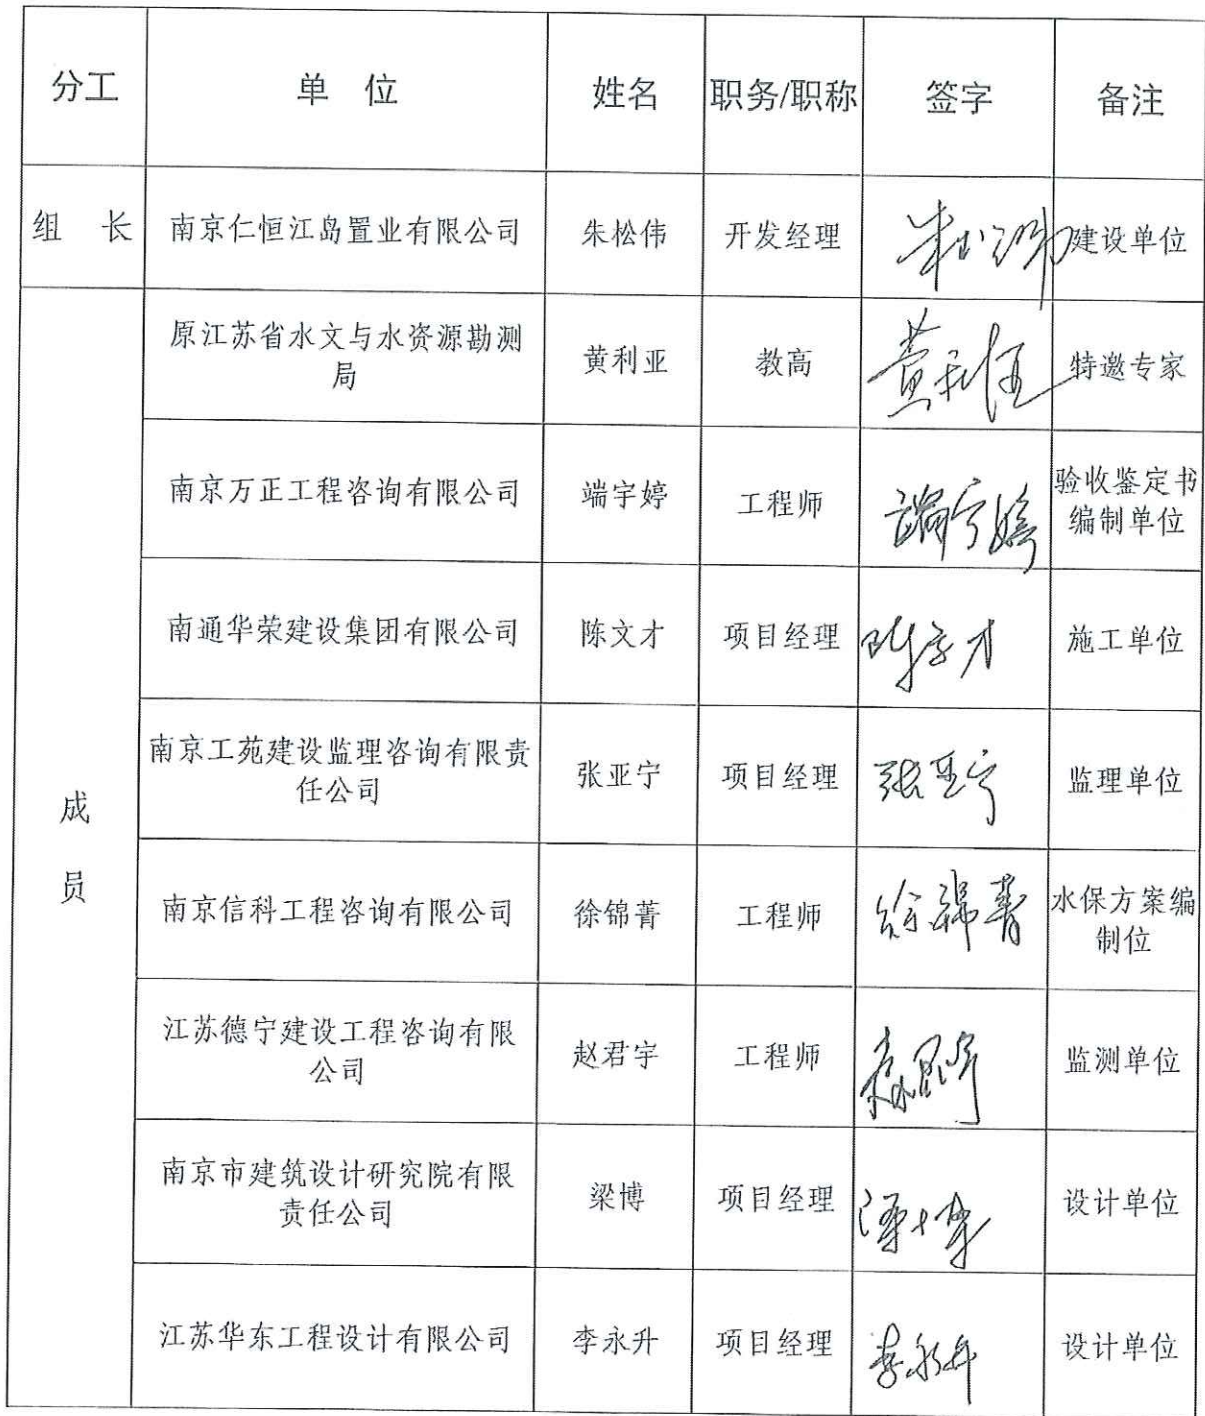 分工 单 位 姓名 职务/职称 签字 备注
组 长 南京仁恒江岛置业有限公司 朱松伟 开发经理 朱松伟 建设单位
成
员
原江苏省水文与水资源勘测
局
黄利亚 教高 特邀专家
南京万正工程咨询有限公司 端宇婷 工程师 端宇婷 验收鉴定书
编制单位
南通华荣建设集团有限公司 陈文才 项目经理 陈文才 施工单位
南京工苑建设监理咨询有限责
任公司
张亚宁 项目经理 张亚宁 监理单位
南京信科工程咨询有限公司 徐锦菁 工程师 徐锦菁 水保方案编
制位
江苏德宁建设工程咨询有限
公司
赵君宇 工程师 监测单位
南京市建筑设计研究院有限
责任公司
梁博 项目经理 设计单位
江苏华东工程设计有限公司 李永升 项目经理 李永升 设计单位